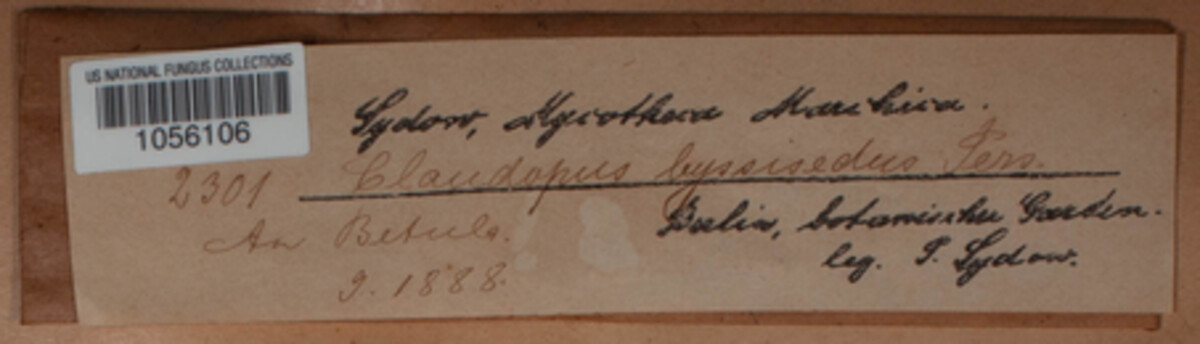 US NATIONAL FUNGUS COLLECTIONS
1056106
Sydow, Mycotheca Marchica.
2301 Claudopus byssisedus Pers.
An Betula.
9. 1888.
Berlin, botanischer Garten.
leg. P. Sydow.